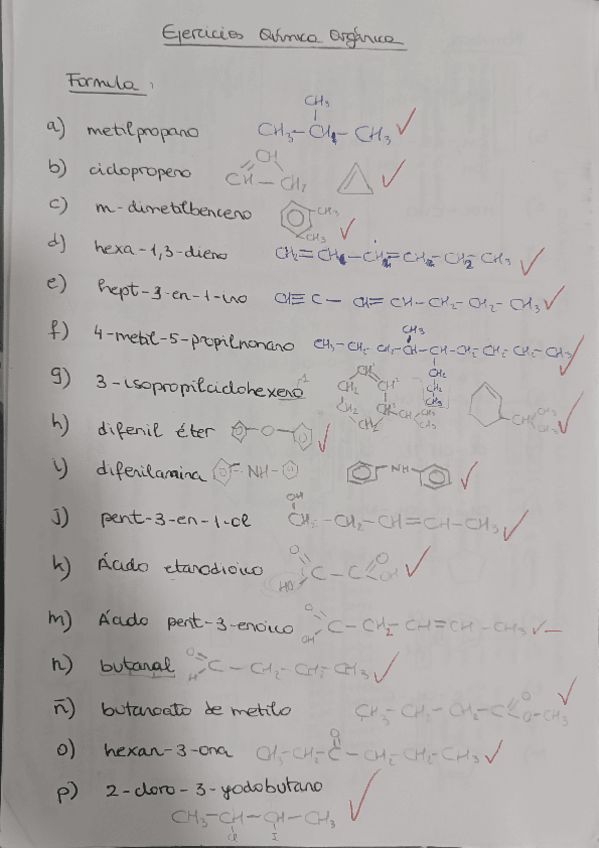 Ejercicios Química Orgánica
Formula:
a) metilpropano CH₃-CH-CH₃ CH₃
b) ciclopropeno CH CH - CH₂
c) m-dimetilbenceno CH₃ CH₃
d) hexa-1,3-dieno CH₂=CH-CH=CH₂-CH₂-CH₃
e) hept-3-en-1-ino CH≡C-CH=CH-CH₂-CH₂-CH₃
f) 4-metil-5-propilnonano CH₃-CH₂-CH₂-CH-CH-CH₂-CH₂-CH₂-CH₃ CH₃ CH₂ CH₂ CH₃
g) 3-isopropilciclohexeno
h) difenil éter O
i) difenilamina NH NH
j) pent-3-en-1-ol OH CH₂-CH₂-CH=CH-CH₃
k) Ácido etanodioico O HO C-C O OH
m) Ácido pent-3-enoico O OH C-CH₂-CH=CH-CH₃
n) butanal O H C-CH₂-CH₂-CH₃
ñ) butanoato de metilo CH₃-CH₂-CH₂-C O O-CH₃
o) hexan-3-ona CH₃-CH₂-C-CH₂-CH₂-CH₃ O
p) 2-cloro-3-yodobutano
CH₃-CH-CH-CH₃
Cl I